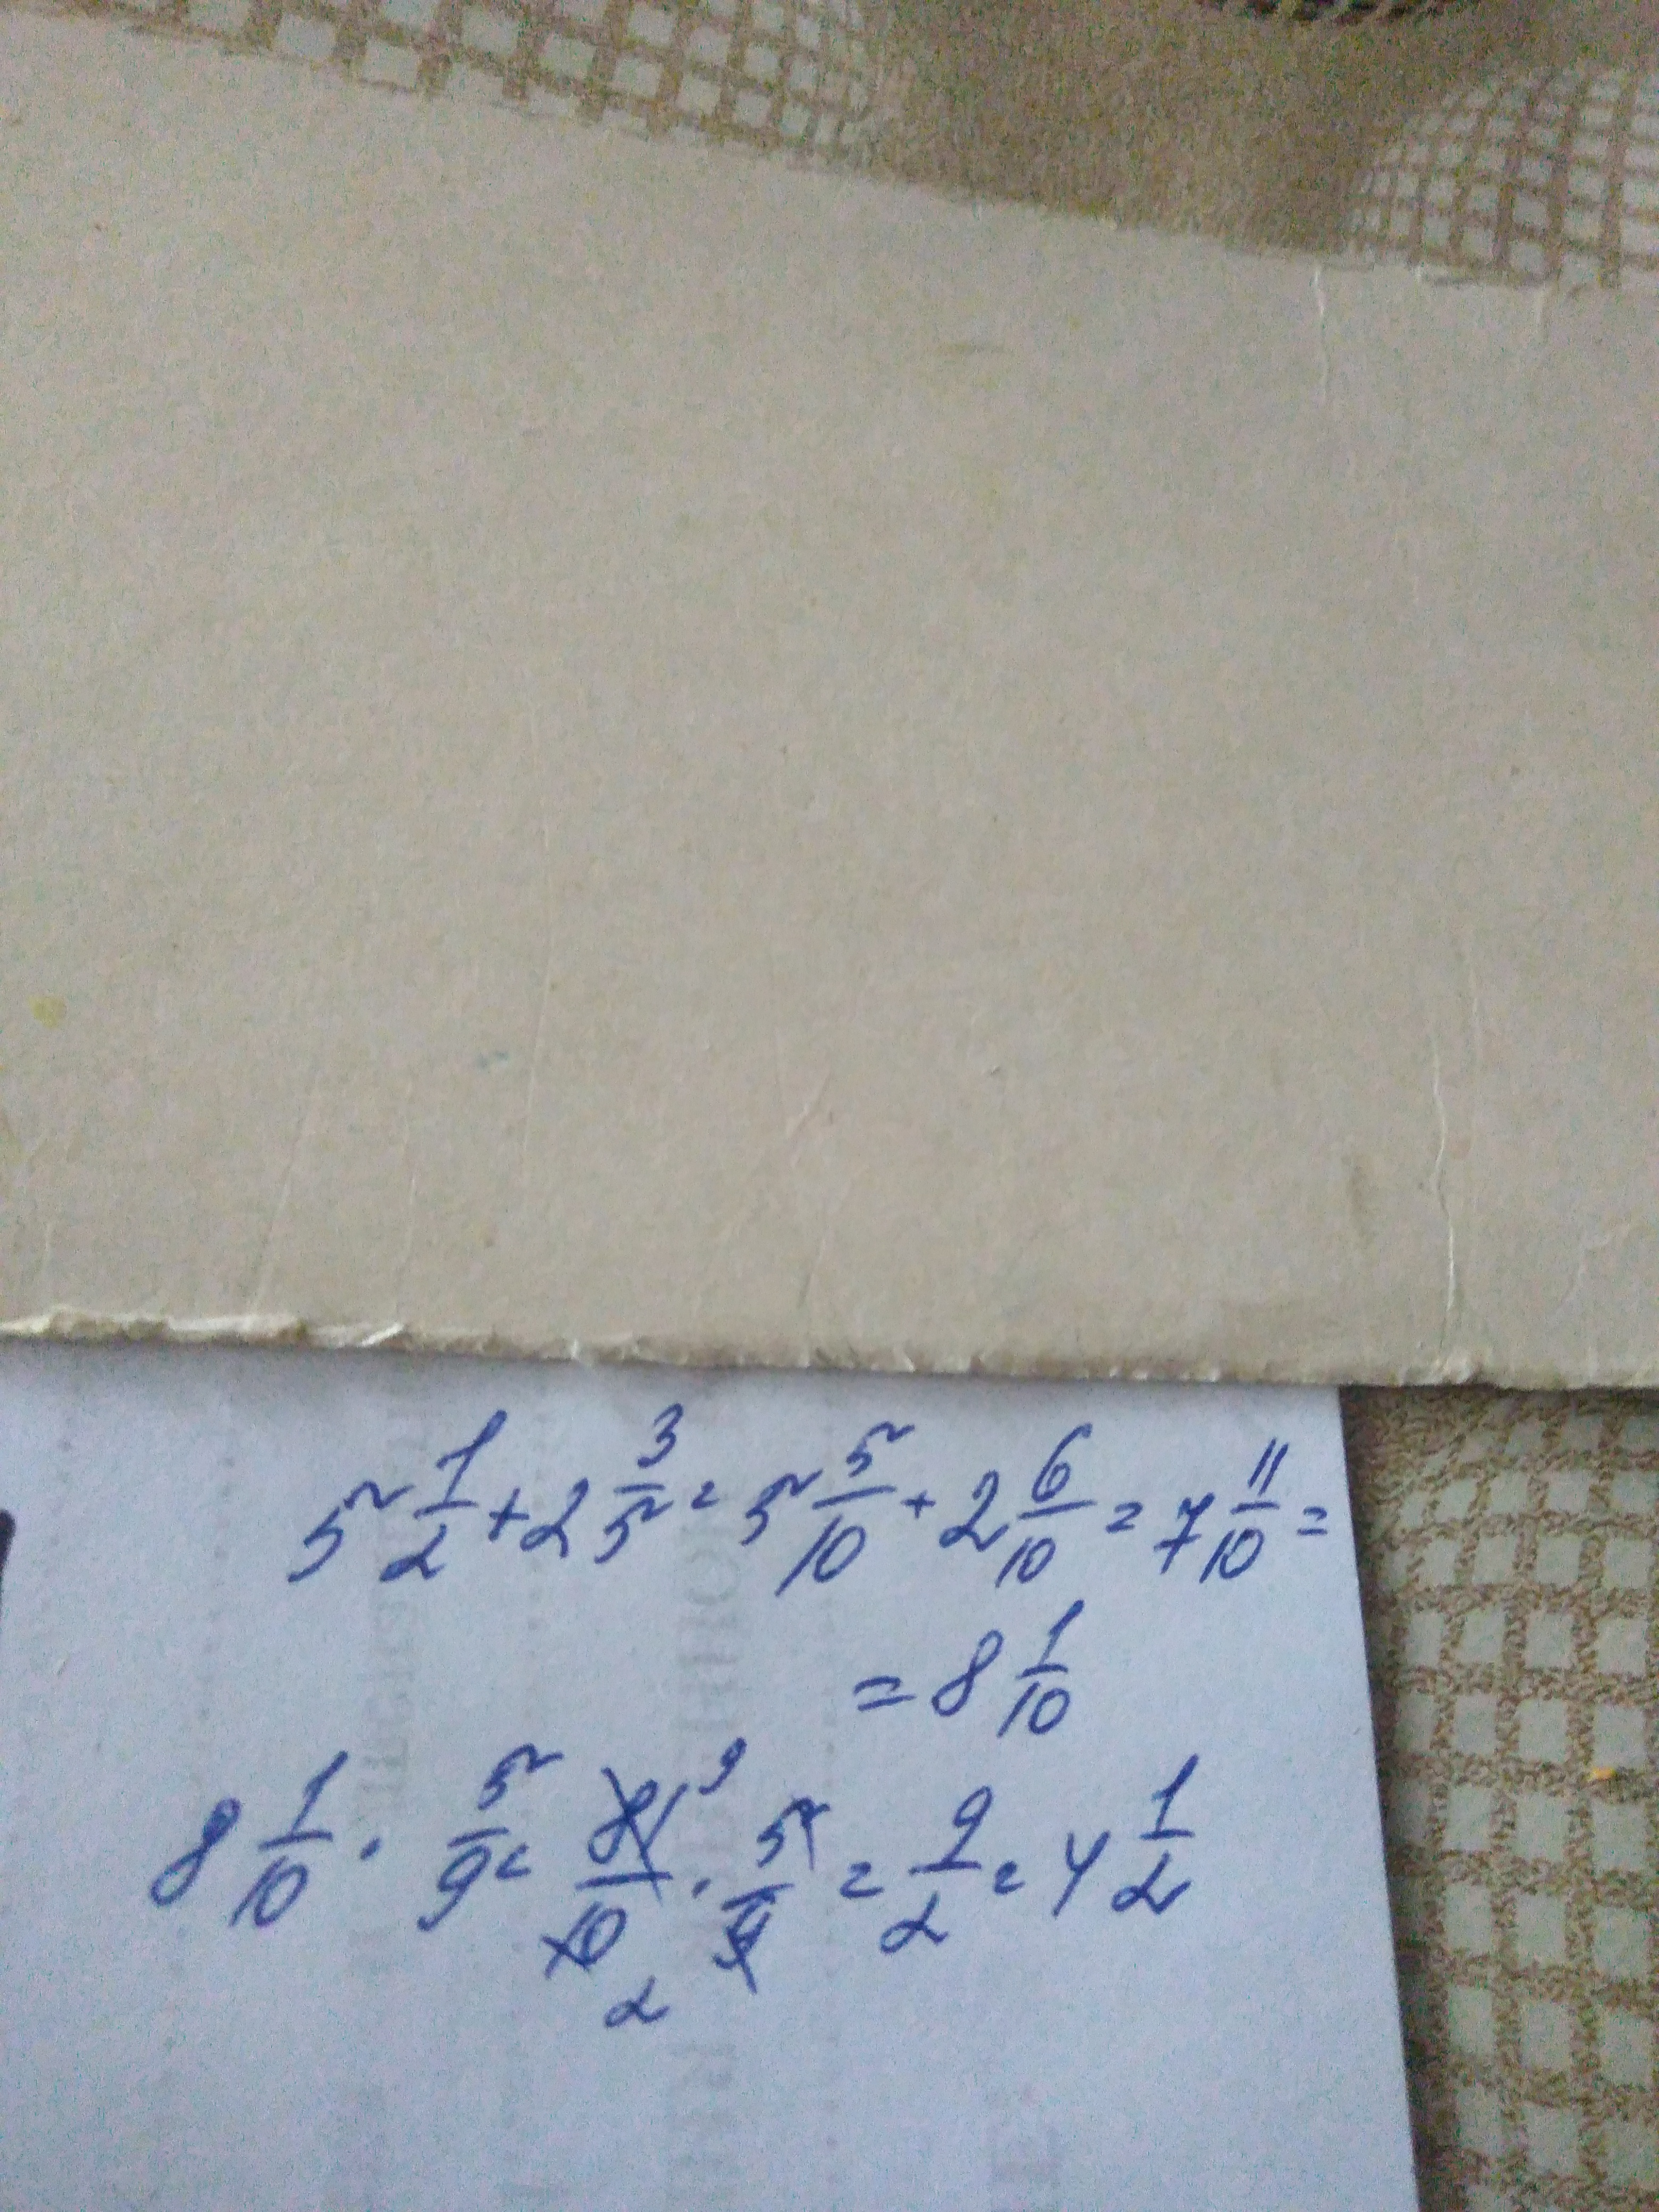 5 1/2 + 2 3/5 = 5 5/10 + 2 6/10 = 7 11/10 =
= 8 1/10
8 1/10 · 5/9 = 81/10 · 5/9 = 9/2 = 4 1/2